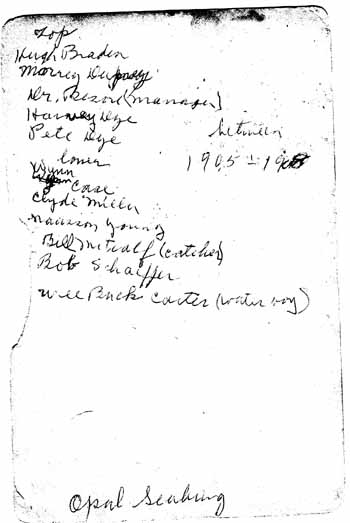 Top
Hugh Braden
Morrey Dupuy
Dr. Rezore (manager)
Harvey Dye
Pete Dye
between
1905 - 1908
lower
Wynn Case
Clyde Miller
Madison Young
Bill Metcalf (catcher)
Bob Schaiffer
Will Buck Carter (water boy)
Opal Seabury